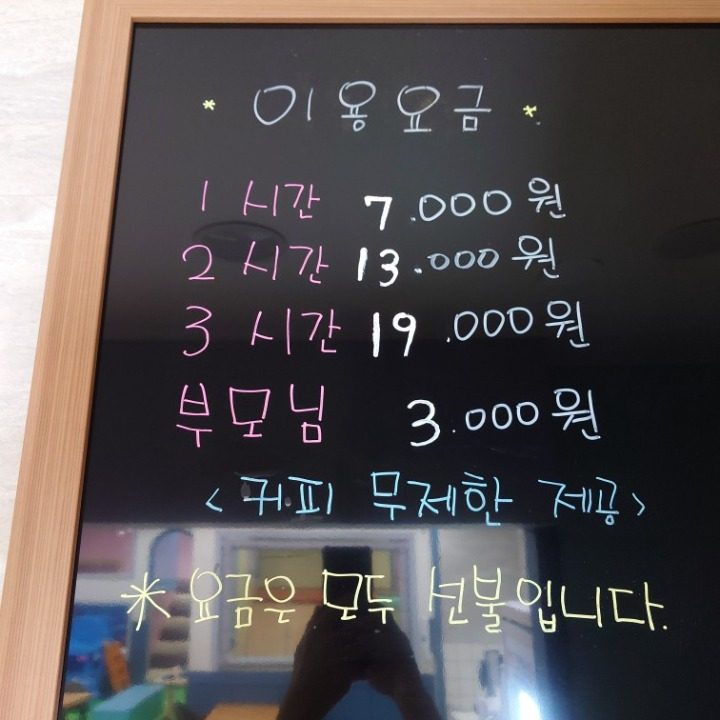 * 이용요금 *
1 시간 7.000원
2 시간 13.000원
3 시간 19.000원
부모님 3.000원
<커피 무제한 제공>
* 요금은 모두 선불입니다.